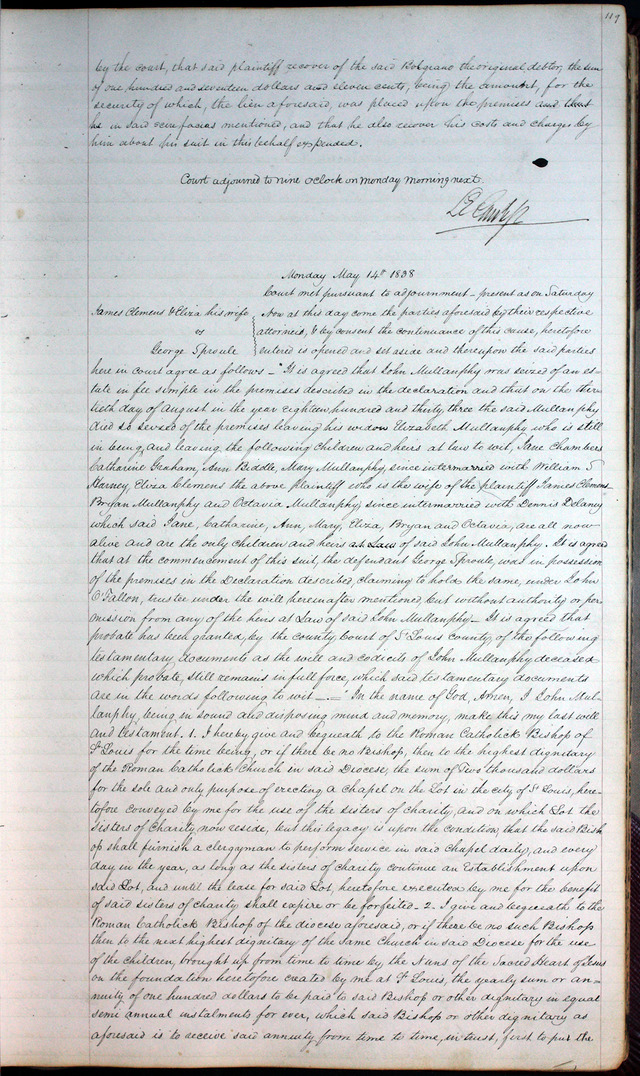 119
by the court, that said plaintiff recover of the said Bolgiano the original debtor, the sum
of one hundred and seventeen dollars and eleven cents, being the amount, for the
security of which, the lien aforesaid, was placed upon the premises and that
he in said scire facias mentioned, and that he also recover his costs and charges by
him about his suit in this behalf expended.
Court adjourned to nine oclock on Monday Morning next
Monday May 14th 1838
Court met pursuant to adjournment - present as on Saturday
James Clemens & Eliza his wife
vs
George Sproule
Now at this day come the parties aforesaid by their respective
attornies, & by consent the continuance of this cause, heretofore
entered is opened and set aside and thereupon the said parties
here in court agree as follows - "It is agreed that John Mullanphy was seized of an es-
tate in fee simple in the premises described in the declaration and that on the thir
tieth day of august in the year eighteen hundred and thirty three the said Mullanphy
died so seized of the premises leaving his widow Elizabeth Mullanphy who is still
in being, and leaving the following children and heirs at law to wit, Jane Chambers
Catharine Graham, Ann Biddle, Mary Mullanphy, since intermarried with William S
Harney, Eliza Clemens the above plaintiff who is the wife of the plaintiff James Clemens
Bryan Mullanphy and Octavia Mullanphy since intermarried with Dennis Delany
which said Jane, Catharine, Ann, Mary, Eliza, Bryan and Octavia, are all now
alive and are the only children and heirs at Law of said John Mullanphy. It is agreed
that at the commencement of this suit, the defendant George Sproule, was in possession
of the premises in the Declaration described, claiming to hold the same, under John
O'Fallon, trustee under the will hereinafter mentioned, but without authority or per-
mission from any of the heirs at Law of said John Mullanphy - It is agreed that
probate has been granted, by the County Court of St Louis County, of the following
testamentary documents as the will and codicils of John Mullanphy deceased
which probate, still remains in full force, which said testamentary documents
are in the words following to wit - "In the name of God, Amen, I John Mul-
lanphy, being in sound and disposing mind and memory, make this my last will
and testament. 1. I hereby give and bequeath to the Roman Catholick Bishop of
St Louis for the time being, or if there be no Bishop, then to the highest dignitary
of the Roman Catholick Church in said Diocese, the sum of Two thousand dollars
for the sole and only purpose of erecting a chapel on the Lot in the city of St Louis, here-
tofore conveyed by me for the use of the sisters of charity, and on which Lot the
Sisters of Charity now reside, but this legacy is upon the condition, that the said Bish
op shall furnish a clergyman to perform service in said chapel daily, and every
day in the year, as long as the sisters of charity continue an Establishment upon
said Lot, and until the lease for said Lot, heretofore executed by me for the benefit
of said sisters of charity shall expire or be forfeited - 2. I give and beqeath to the
Roman Catholick Bishop of the diocese aforesaid, or if there be no such Bishop
then to the next highest dignitary of the Same Church in said Diocese for the use
of the children, brought up from time to time by the Nuns of the Sacred Heart of Jesus
on the foundation heretofore created by me at St Louis, the yearly sum or an-
nuity of one hundred dollars to be paid to said Bishop or other dignitary in equal
semi annual instalments for ever, which said Bishop or other dignitary as
aforesaid is to receive said annuity from time to time, in trust, first to put the